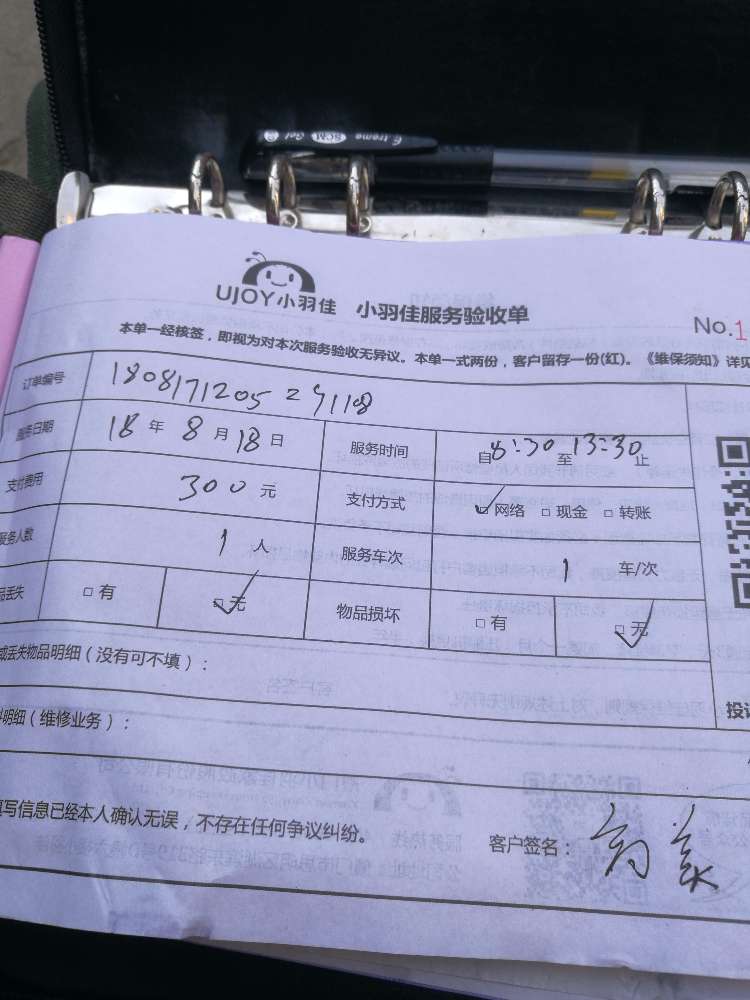 E-xtreme GCM Gel
UJOY小羽佳 小羽佳服务验收单
No.1
本单一经核签，即视为对本次服务验收无异议。本单一式两份，客户留存一份(红)。《维保须知》详见
订单编号
服务日期 18 年 8 月 18 日 服务时间 自 8:30 至 13:30 止
支付费用 300 元 支付方式 网络 现金 转账
服务人数 1 人 服务车次 1 车/次
品丢失 有 无 物品损坏 有 无
或丢失物品明细（没有可不填）：
料明细（维修业务）：
投
填写信息已经本人确认无误，不存在任何争议纠纷。
客户签名：